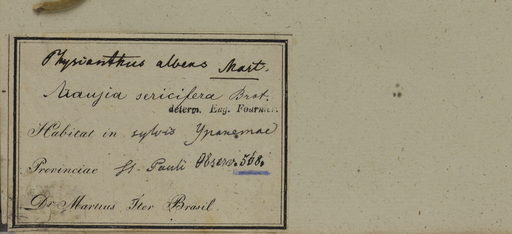 Physianthus albens Mart.
Araujia sericifera Brot.
déterm. Eug. Fournier.
Habitat in sylvis Ypanemae
Provinciae St. Pauli Observ. 568.
Dr. Martius Iter Brasil